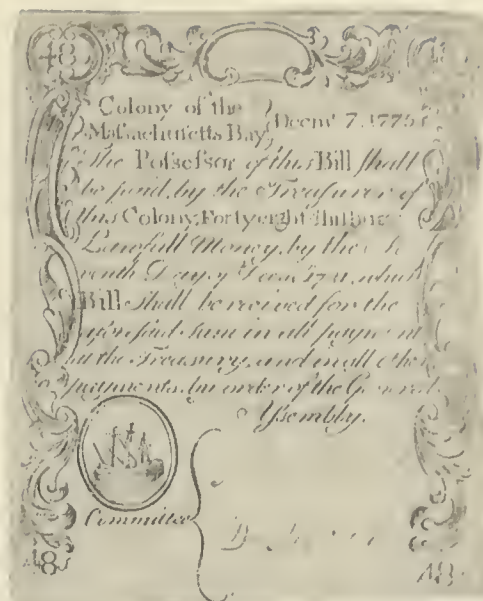 48
Colony of the
Maſsachuſetts Bay, Decmr. 7. 1775
The Poſseſsor of this Bill ſhall
be paid, by the Treaſurer of
this Colony, Forty eight
Lawfull Money, by the
Day of which
Bill ſhall be received for the
Sum in all
at the Treaſury, and in all other
payments, by order of the General
Aſsembly.
Committee
48
48